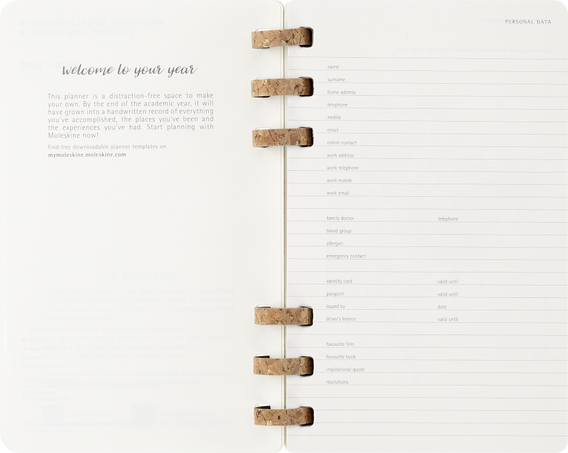 welcome to your year
This planner is a distraction-free space to make
your own. By the end of the academic year, it will
have grown into a handwritten record of everything
you've accomplished, the places you've been and
the experiences you've had. Start planning with
Moleskine now!
Find free downloadable planner templates on
mymoleskine.moleskine.com
PERSONAL DATA
name
surname
home address
telephone
mobile
email
online contact
work address
work telephone
work mobile
work email
family doctor telephone
blood group
allergies
emergency contact
identity card valid until
passport valid until
issued by date
driver's licence valid until
favourite film
favourite book
inspirational quote
resolutions